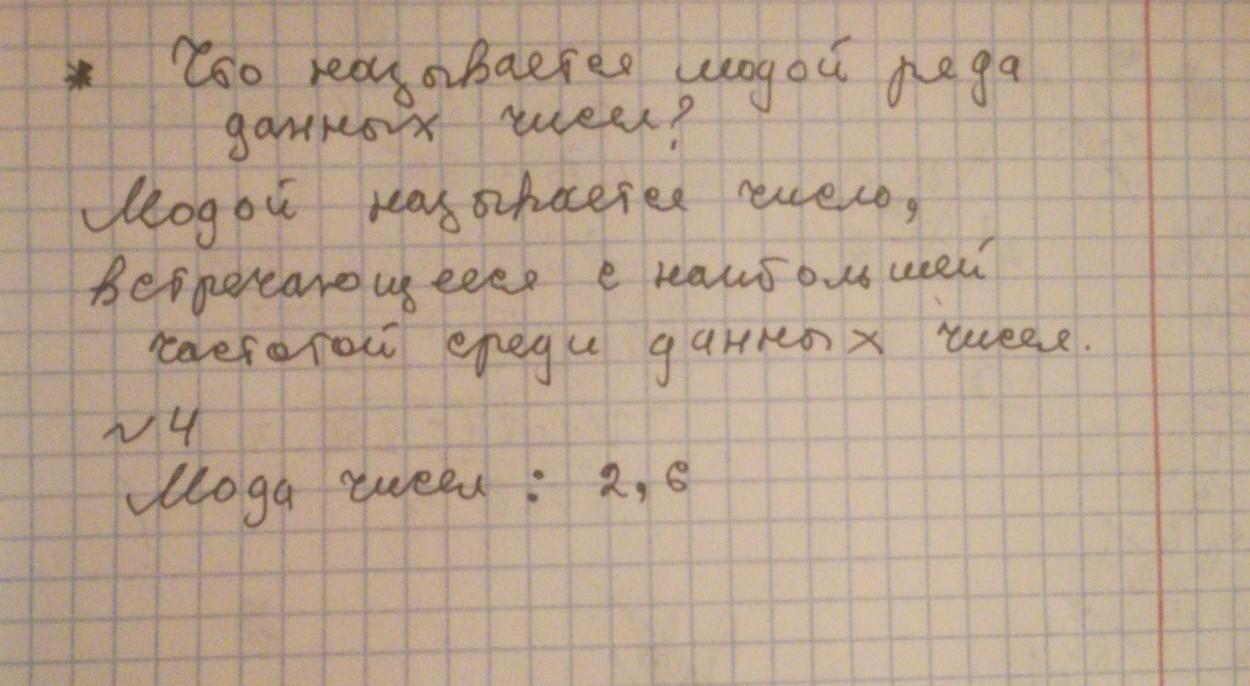 * Что называется модой ряда
данных чисел?
Модой называется число,
встречающееся с наибольшей
частотой среди данных чисел.
№4
Мода чисел : 2,6